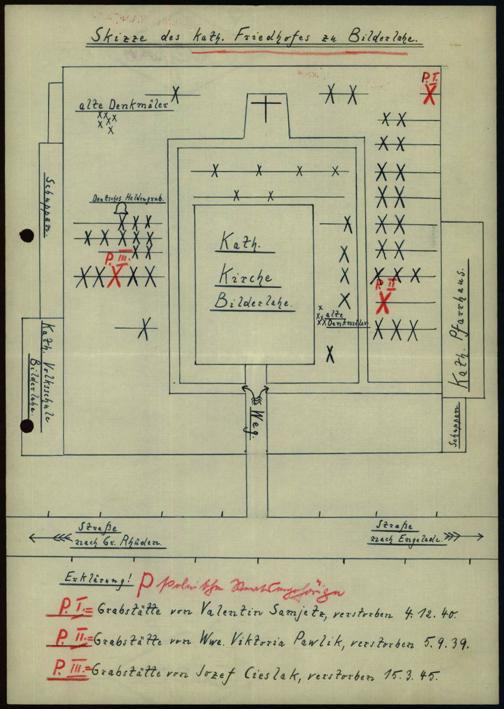 Skizze des kath. Friedhofes zu Bilderlahe.
P. I.
alte Denkmäler
Schuppen
Deutsches Heldengrab.
P. III.
Kath.
Kirche
Bilderlahe.
P. II
alte
Denkmäler
Kath. Pfarrhaus.
Kath. Volksschule
Bilderlahe.
Schuppen
Weg.
Straße
nach Gr. Rhüden
Straße
nach Engelade
Erklärung! P polnische Staatsangehörige
P. I. = Grabstätte von Valentin Samjetz, verstorben 4.12.40.
P. II. = Grabstätte von Wwe. Viktoria Pawlik, verstorben 5.9.39.
P. III. = Grabstätte von Jozef Cieslak, verstorben 15.3.45.